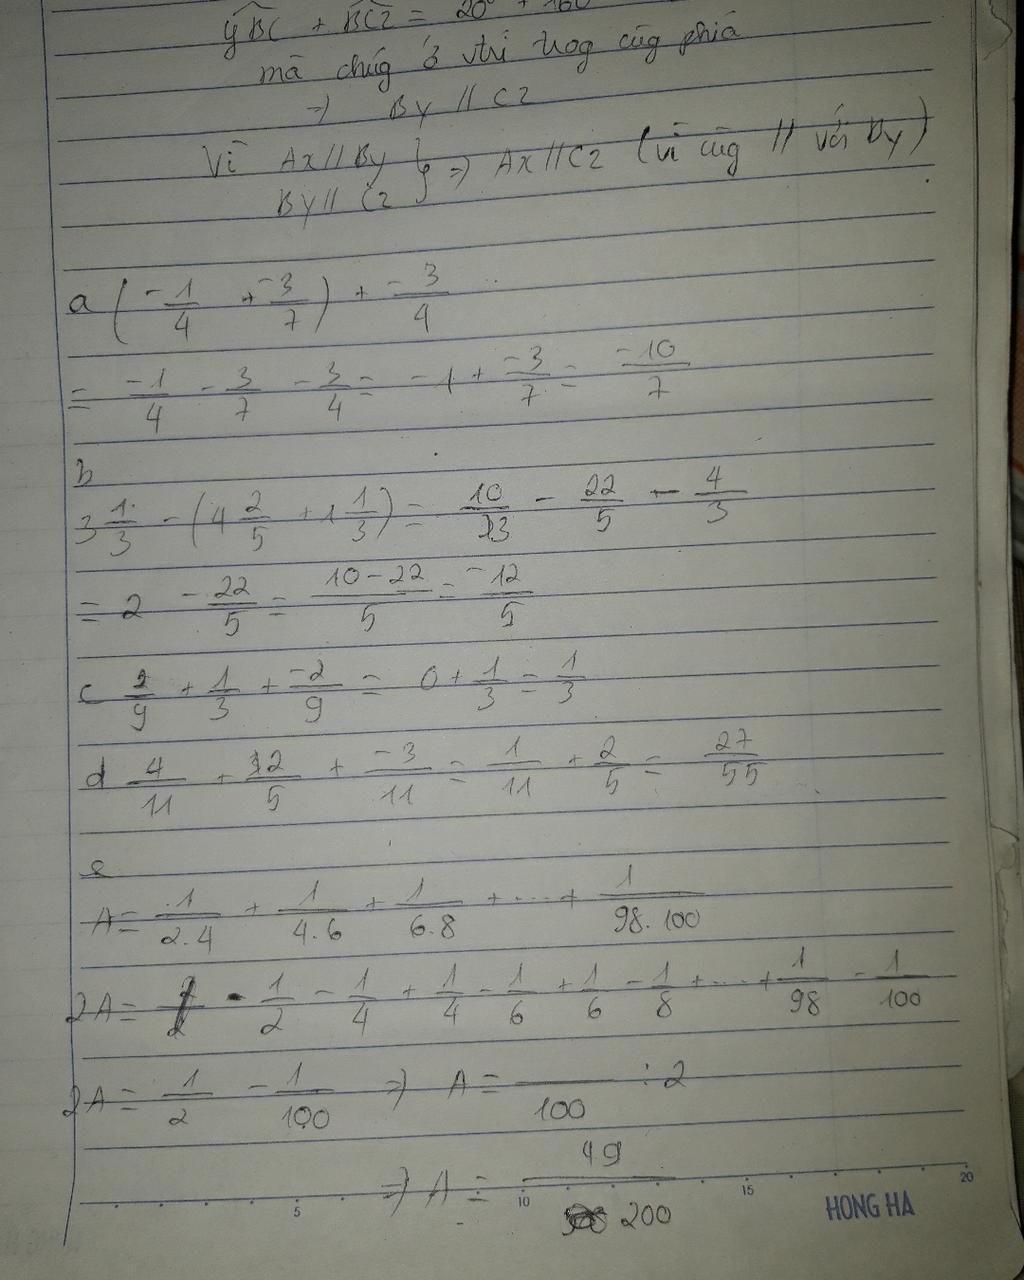 yBC + BCz = 20° + 160
mà chúg ở vtri trog cùg phía
=> By // Cz
Vì Ax // By } => Ax // Cz (vì cùg // với By)
By // Cz
a (-1/4 + -3/7) + -3/4
= -1/4 - 3/7 - 3/4 = -1 + -3/7 = -10/7
b
3 1/3 - (4 2/5 + 1 1/3) = 10/3 - 22/5 - 4/3
= 2 - 22/5 = 10-22/5 = -12/5
c 2/9 + 1/3 + -2/9 = 0 + 1/3 = 1/3
d 4/11 + 2/5 + -3/11 = 1/11 + 2/5 = 27/55
e
A = 1/2.4 + 1/4.6 + 1/6.8 + .... + 1/98.100
2A = 1/2 - 1/4 + 1/4 - 1/6 + 1/6 - 1/8 + ... + 1/98 - 1/100
2A = 1/2 - 1/100 => A = /100 : 2
=> A = 49/200
5 10 15 20
HONG HA